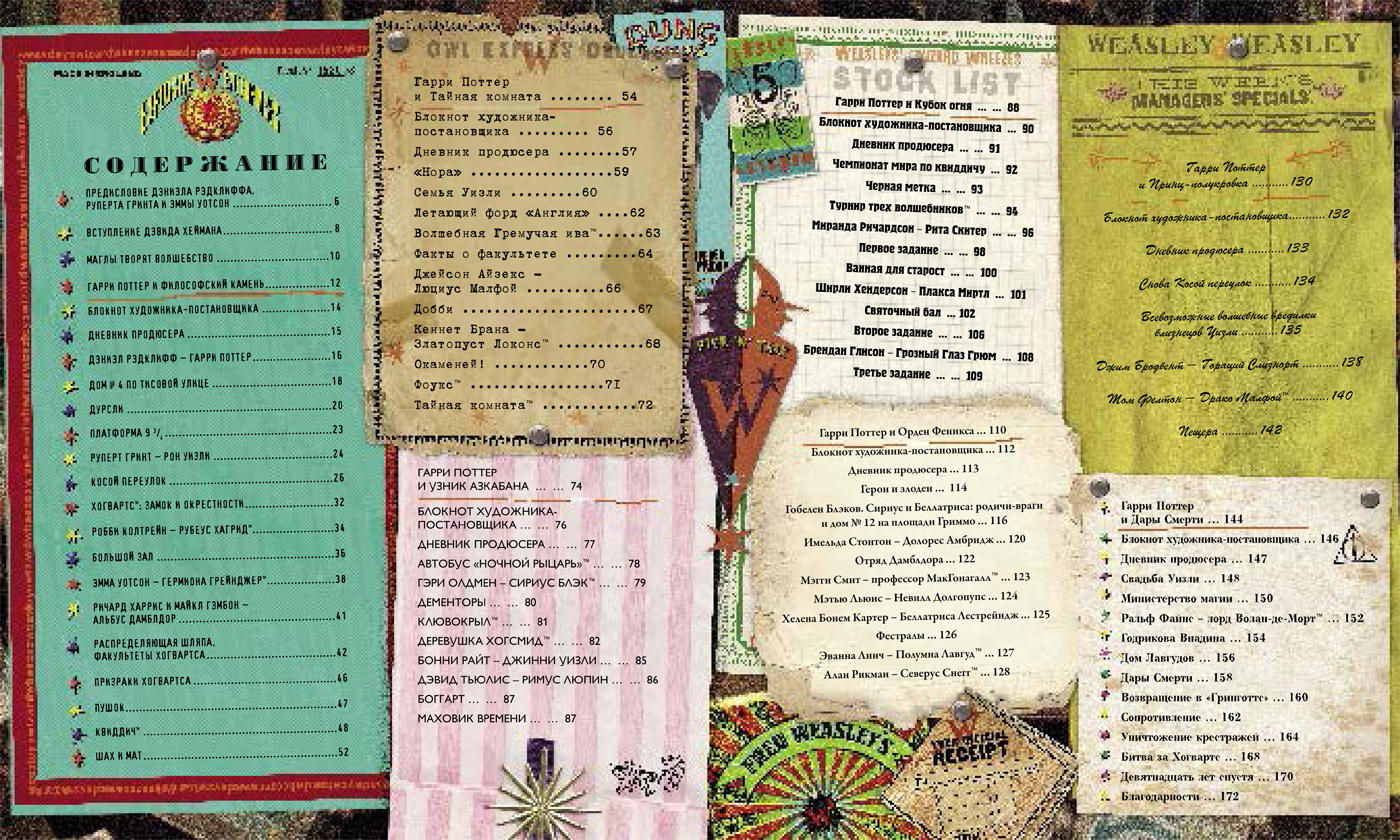 СОДЕРЖАНИЕ
ПРЕДИСЛОВИЕ ДЭНИЭЛА РЭДКЛИФФА,
РУПЕРТА ГРИНТА И ЭММЫ УОТСОН ........ 6
ВСТУПЛЕНИЕ ДЭВИДА ХЕЙМАНА ........ 8
МАГЛЫ ТВОРЯТ ВОЛШЕБСТВО ........ 10
ГАРРИ ПОТТЕР И ФИЛОСОФСКИЙ КАМЕНЬ ........ 12
БЛОКНОТ ХУДОЖНИКА-ПОСТАНОВЩИКА ........ 14
ДНЕВНИК ПРОДЮСЕРА ........ 15
ДЭНИЭЛ РЭДКЛИФФ – ГАРРИ ПОТТЕР ........ 16
ДОМ № 4 ПО ТИСОВОЙ УЛИЦЕ ........ 18
ДУРСЛИ ........ 20
ПЛАТФОРМА 9 ¾ ........ 23
РУПЕРТ ГРИНТ – РОН УИЗЛИ ........ 24
КОСОЙ ПЕРЕУЛОК ........ 26
ХОГВАРТС™: ЗАМОК И ОКРЕСТНОСТИ ........ 32
РОББИ КОЛТРЕЙН – РУБЕУС ХАГРИД™ ........ 34
БОЛЬШОЙ ЗАЛ ........ 36
ЭММА УОТСОН – ГЕРМИОНА ГРЕЙНДЖЕР™ ........ 38
РИЧАРД ХАРРИС И МАЙКЛ ГЭМБОН –
АЛЬБУС ДАМБЛДОР ........ 41
РАСПРЕДЕЛЯЮЩАЯ ШЛЯПА.
ФАКУЛЬТЕТЫ ХОГВАРТСА ........ 42
ПРИЗРАКИ ХОГВАРТСА ........ 46
ПУШОК ........ 47
КВИДДИЧ™ ........ 48
ШАХ И МАТ ........ 52
Гарри Поттер
и Тайная комната ........ 54
Блокнот художника-
постановщика ......... 56
Дневник продюсера ........57
«Нора» .................59
Семья Уизли ..........60
Летающий форд «Англия» ....62
Волшебная Гремучая ива™......63
Факты о факультете ........64
Джейсон Айзекс –
Люциус Малфой ..........66
Добби ....................67
Кеннет Брана –
Златопуст Локонс™ ........68
Окаменей! ............70
Фоукс™ .................71
Тайная комната™ ...........72
ГАРРИ ПОТТЕР
И УЗНИК АЗКАБАНА ... ... 74
БЛОКНОТ ХУДОЖНИКА-
ПОСТАНОВЩИКА ... ... 76
ДНЕВНИК ПРОДЮСЕРА ... ... 77
АВТОБУС «НОЧНОЙ РЫЦАРЬ»™ ... ... 78
ГЭРИ ОЛДМЕН – СИРИУС БЛЭК™ ... ... 79
ДЕМЕНТОРЫ ... ... 80
КЛЮВОКРЫЛ™ ... ... 81
ДЕРЕВУШКА ХОГСМИД™ ... ... 82
БОННИ РАЙТ – ДЖИННИ УИЗЛИ ... ... 85
ДЭВИД ТЬЮЛИС – РИМУС ЛЮПИН ... ... 86
БОГГАРТ ... ... 87
МАХОВИК ВРЕМЕНИ ... ... 87
DUNG
5
WEASLEYS' WIZARD WHEEZES
STOCK LIST
Гарри Поттер и Кубок огня ... ... 88
Блокнот художника-постановщика ... ... 90
Дневник продюсера ... ... 91
Чемпионат мира по квиддичу ... ... 92
Черная метка ... ... 93
Турнир трех волшебников™ ... ... 94
Миранда Ричардсон – Рита Скитер ... ... 96
Первое задание ... ... 98
Ванная для старост ... ... 100
Ширли Хендерсон – Плакса Миртл ... ... 101
Святочный бал ... 102
Второе задание ... ... 106
Брендан Глисон – Грозный Глаз Грюм ... ... 108
Третье задание ... ... 109
Гарри Поттер и Орден Феникса ... 110
Блокнот художника-постановщика ... 112
Дневник продюсера ... 113
Герои и злодеи ... 114
Гобелен Блэков. Сириус и Беллатриса: родичи-враги
и дом № 12 на площади Гриммо ... 116
Имельда Стонтон – Долорес Амбридж ... 120
Отряд Дамблдора ... 122
Мэгги Смит – профессор МакГонагалл™ ... 123
Мэтью Льюис – Невилл Долгопупс ... 124
Хелена Бонем Картер – Беллатриса Лестрейндж ... 125
Фестралы ... 126
Эванна Линч – Полумна Лавгуд™ ... 127
Алан Рикман – Северус Снегг™ ... 128
FRED WEASLEYS'
RECEIPT
WEASLEY WEASLEY
THIS WEEK'S
MANAGERS' SPECIALS
Гарри Поттер
и Принц-полукровка ...........130
Блокнот художника-постановщика...........132
Дневник продюсера ...........133
Снова Косой переулок ...........134
Всевозможные волшебные вредилки
близнецов Уизли ...........135
Джим Бродбент — Гораций Слизнорт ...........138
Том Фелтон — Драко Малфой™ ...........140
Пещера ...........142
Гарри Поттер
и Дары Смерти ... 144
Блокнот художника-постановщика ... 146
Дневник продюсера ... 147
Свадьба Уизли ... 148
Министерство магии ... 150
Ральф Файнс – лорд Волан-де-Морт™ ... 152
Годрикова Впадина ... 154
Дом Лавгудов ... 156
Дары Смерти ... 158
Возвращение в «Гринготтс» ... 160
Сопротивление ... 162
Уничтожение крестражей ... 164
Битва за Хогвартс ... 168
Девятнадцать лет спустя ... 170
Благодарности ... 172